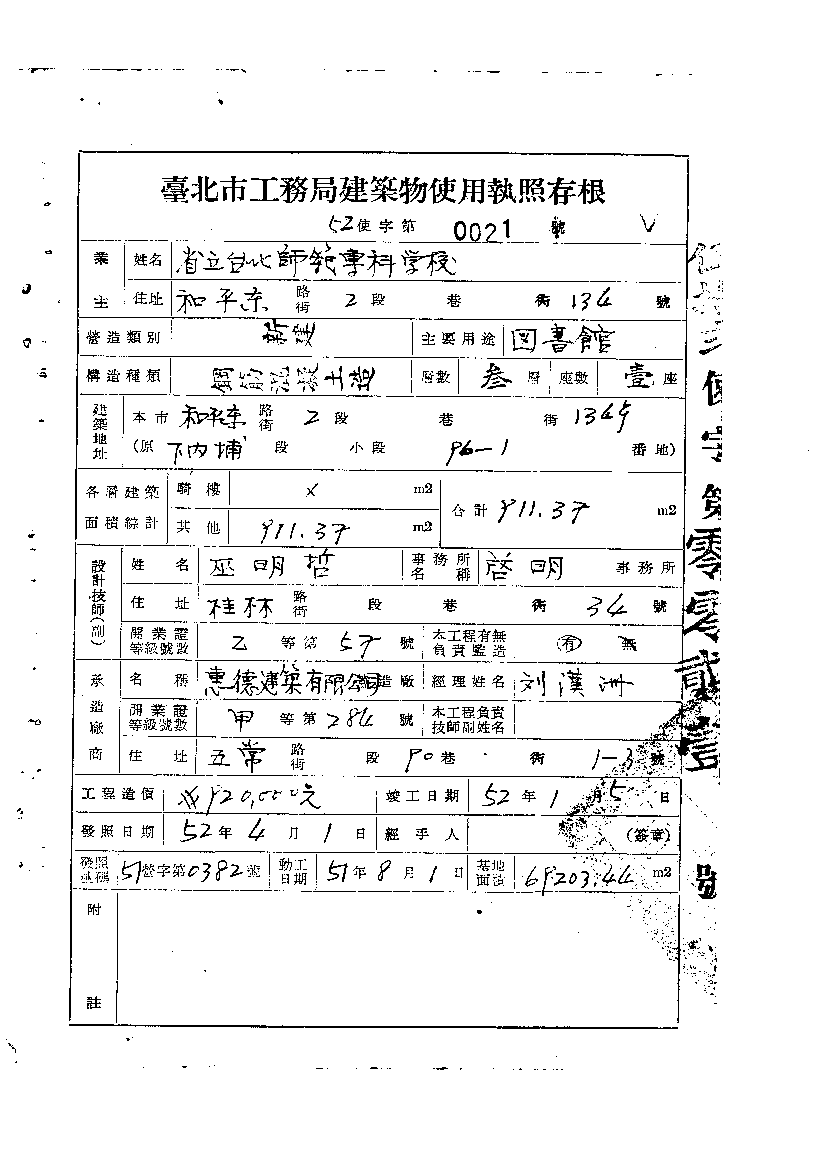 臺北市工務局建築物使用執照存根
52使字第 0021 號 V
業主 姓名 省立台北師範專科学校
住址 和平东 路街 2 段 巷 街 134 號
營造類別 新建 主要用途 図書館
構造種類 鋼筋混凝土造 層數 叁 層 座數 壹 座
建築地址 本市 和平东 路街 2 段 巷 街 134號
(原 下內埔 段 小段 96-1 番地)
各層建築面積綜計 騎樓 × m2 合計 911.37 m2
其他 911.37 m2
設計技師(副) 姓名 巫明哲 事務所名稱 啓明 事務所
住址 桂林 路街 段 巷 街 34 號
開業證等級號數 乙 等第 57 號 本工程有無負責監造 有 無
承造廠商 名稱 惠德建築有限公司 營造廠 經理姓名 刘漢洲
開業證等級號數 甲 等第 284 號 本工程負責技師副姓名
住址 五常 路街 段 90 巷 街 1-3 號
工程造價 920,000元 竣工日期 52 年 1 月 5 日
發照日期 52 年 4 月 1 日 經手人 (簽章)
51營字第0382號 動工日期 51 年 8 月 1 日 基地面積 69203.44 m2
附註
使字第零零貳壹號